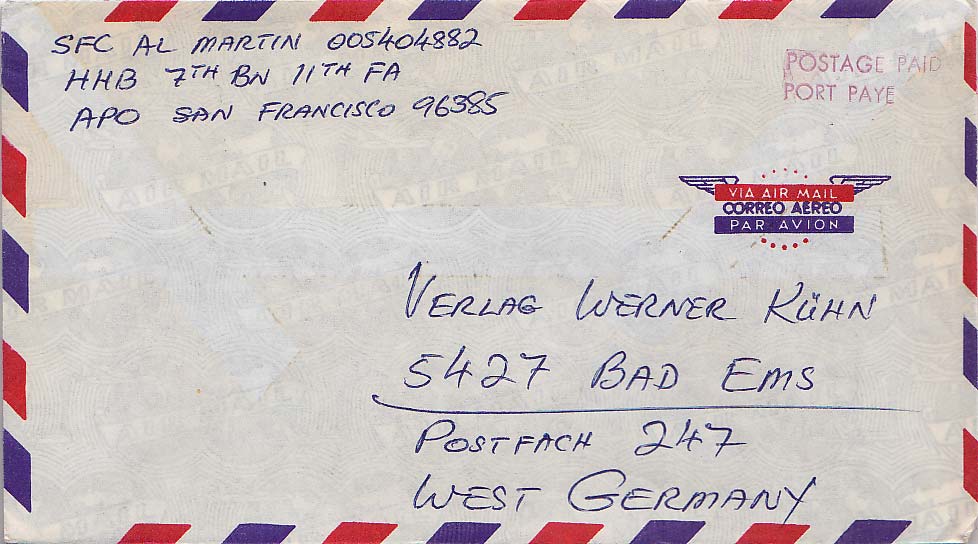 SFC AL MARTIN 005404882
HHB 7TH BN 11TH FA
APO SAN FRANCISCO 96385
POSTAGE PAID
PORT PAYE
VIA AIR MAIL
CORREO AEREO
PAR AVION
VERLAG WERNER KÜHN
5427 BAD EMS
POSTFACH 247
WEST GERMANY